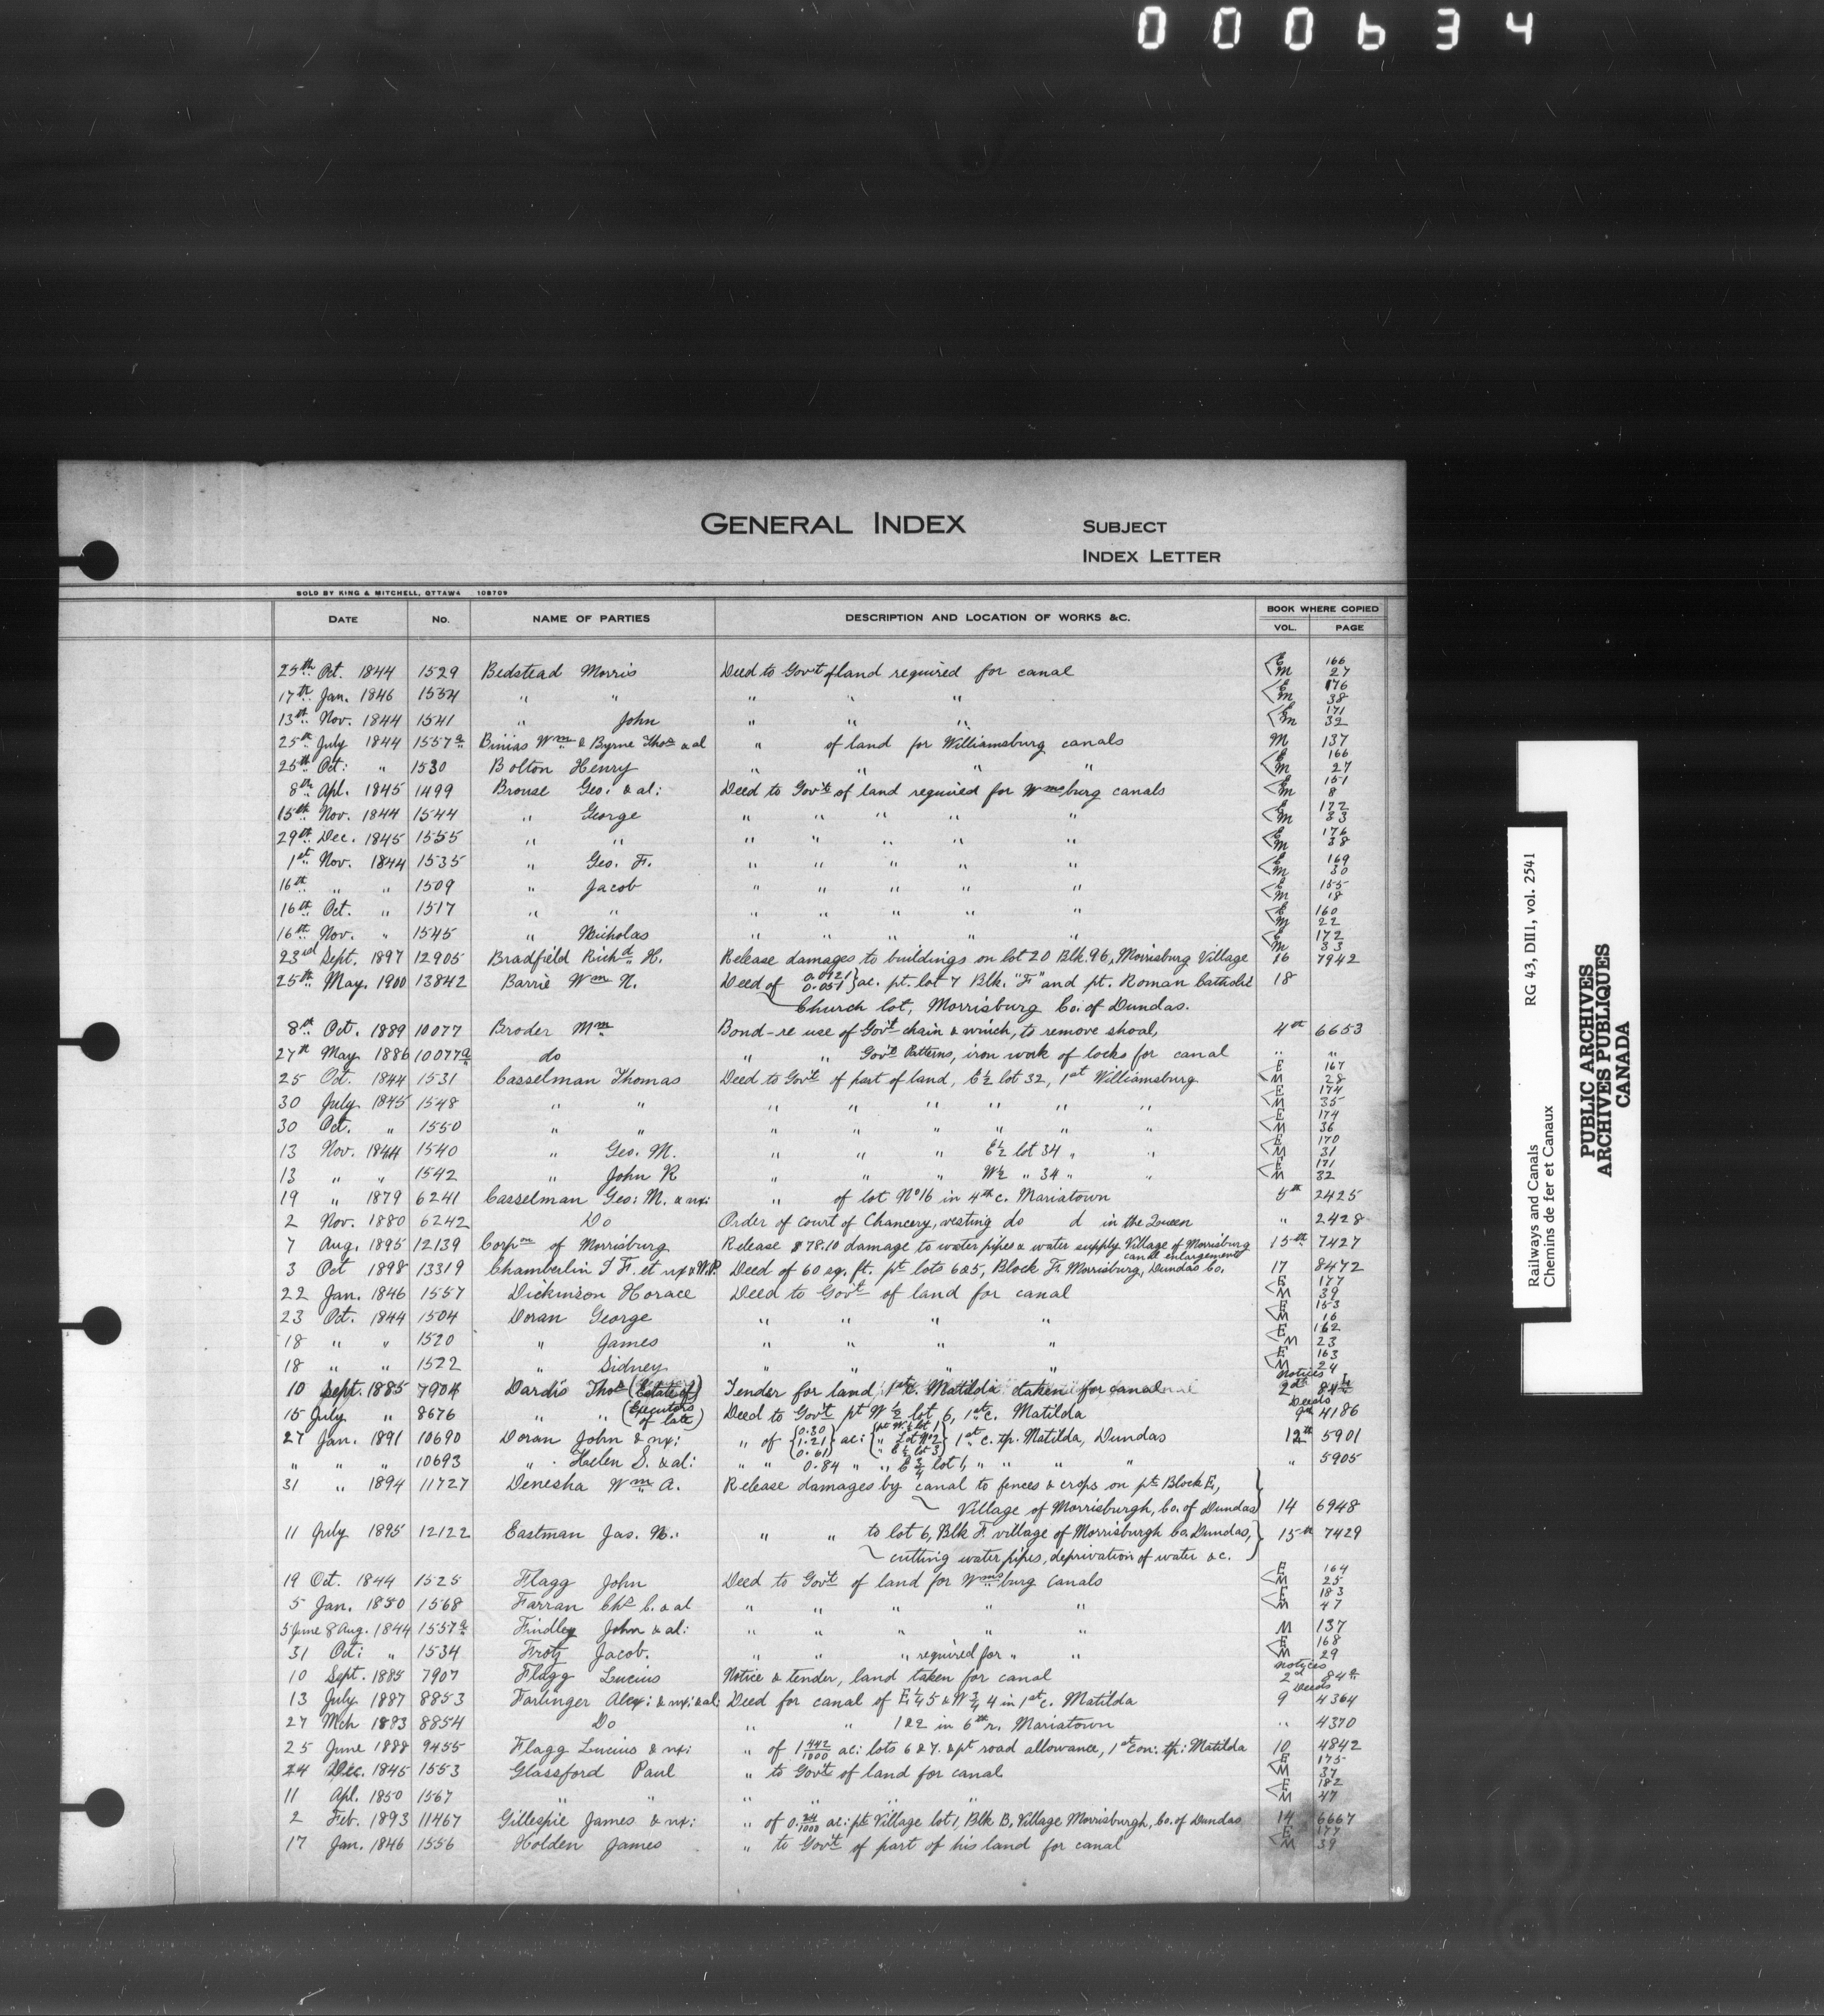 000634
GENERAL INDEX
SUBJECT
INDEX LETTER
SOLD BY KING & MITCHELL, OTTAWA 108709
DATE No. NAME OF PARTIES DESCRIPTION AND LOCATION OF WORKS &C. BOOK WHERE COPIED
VOL. PAGE
25th Oct. 1844 1529 Bedstead Morris Deed to Gov't of land required for canal E 166 M 27
17th Jan. 1846 1554 " " " " " E 176 M 38
13th Nov. 1844 1541 " John " " " E 171 M 32
25th July 1844 1557a Wm & Byrne Thos & al " of land for Williamsburg canals M 137
25th Oct: " 1530 Bolton Henry " " " " E 166 M 27
8th Apl. 1845 1499 Brouse Geo: & al: Deed to Gov't of land required for Wmsburg canals E 151 M 8
15th Nov. 1844 1544 " George " " " " " E 172 M 33
29th Dec. 1845 1555 " " " " " " " E 176 M 38
1st Nov. 1844 1535 " Geo. F. " " " " " E 169 M 30
16th " " 1509 " Jacob " " " " " E 155 M 18
16th Oct. " 1517 " " " " " " " E 160 M 22
16th Nov. " 1545 " Nicholas " " " " " E 172 M 33
23rd Sept. 1897 12905 Bradfield Richd H. Release damages to buildings on lot 20 Blk. 96, Morrisburg Village 16 7942
25th May. 1900 13842 Barrie Wm N. Deed of 0.051 } ac. pt. lot 7 Blk. "F" and pt. Roman Catholic 18
Church lot, Morrisburg Co. of Dundas.
8th Oct. 1889 10077 Broder Wm Bond-re use of Gov't chain & winch, to remove shoal, 4th 6653
27th May 1886 10077a do " " Gov't Patterns, iron work of locks for canal " "
25 Oct. 1844 1531 Casselman Thomas Deed to Gov't of part of land, E½ lot 32, 1st Williamsburg E 167 M 28
30 July 1845 1548 " " " " " " " " E 174 M 35
30 Oct. " 1550 " " " " " " " " E 174 M 36
13 Nov. 1844 1540 " Geo. M. " " " E½ lot 34 " " E 170 M 31
13 " " 1542 " John R " " " W½ " 34 " " E 171 M 32
19 " 1879 6241 Casselman Geo: M. & ux: " of lot No 16 in 4th c. Mariatown 5th 2425
2 Nov. 1880 6242 Do Order of court of Chancery, vesting do d in the Queen " 2428
7 Aug. 1895 12139 Corpn of Morrisburg Release $78.10 damage to water pipes & water supply Village of Morrisburg 15th 7427
canal enlargement
3 Oct 1898 13319 Chamberlin T F. et ux & W.P. Deed of 60 sq. ft. pt lots 6 & 5, Block F. Morrisburg, Dundas Co. 17 8472
22 Jan. 1846 1557 Dickinson Horace Deed to Gov't of land for canal E 177 M 39
23 Oct. 1844 1504 Doran George " " " " E 153 M 16
18 " " 1520 " James " " " " E 162 M 23
18 " " 1522 " Sidney " " " " E 163 M 24
10 Sept. 1885 7904 Dardis Thos (Estate of) Tender for land 1st c. Matilda taken for canal Notices 2d 84
15 July " 8676 " " (Executors of late) Deed to Gov't pt W½ lot 6, 1st c. Matilda Deeds 9th 4186
27 Jan. 1891 10690 Doran John & ux: " of {0.30 1.21 0.61} ac: {pt W½ lot 1 " Lot No 2 " E½ lot 3} 1st c. tp. Matilda, Dundas 12th 5901
" " " 10693 " Helen S. & al: " " 0.84 " " E¾ lot 1, " " " " " 5905
31 " 1894 11727 Denesha Wm A. Release damages by canal to fences & crops on pt Block E,
Village of Morrisburgh, Co. of Dundas 14 6948
11 July 1895 12122 Eastman Jas. N.: " " to lot 6, Blk F. village of Morrisburgh Co. Dundas, 15th 7429
cutting water pipes, deprivation of water &c.
19 Oct. 1844 1525 Flagg John Deed to Gov't of land for Wmsburg canals E 164 M 25
5 Jan. 1850 1568 Farran Chs C. & al " " " " " E 183 M 47
5 June 8 Aug. 1844 1557a Findley John & al: " " " " " M 137
31 Oct: " 1534 Frotz Jacob. " " " required for " " E 168 M 29
10 Sept. 1885 7907 Flagg Lucius Notice & tender, land taken for canal Notices 2d 84a
13 July 1887 8853 Farlinger Alex: & ux: & al: Deed for canal of E¼ 5 & W¾ 4 in 1st c. Matilda Deeds 9 4364
27 Mch 1883 8854 Do " " 1 & 2 in 6th r. Mariatown " 4370
25 June 1888 9455 Flagg Lucius & ux: " of 1 442/1000 ac: lots 6 & 7. & pt road allowance, 1st con: tp: Matilda 10 4842
24 Dec. 1845 1553 Glassford Paul " to Gov't of land for canal E 175 M 37
11 Apl. 1850 1567 " " " " " " " E 182 M 47
2 Feb. 1893 11467 Gillespie James & ux: " of 0.24/1000 ac: pt Village lot 1, Blk B, Village Morrisburgh, Co. of Dundas 14 6667
17 Jan. 1846 1556 Holden James " to Gov't of part of his land for canal E 177 M 39
Railways and Canals RG 43, DIII, vol. 2541
Chemins de fer et Canaux
PUBLIC ARCHIVES
ARCHIVES PUBLIQUES
CANADA